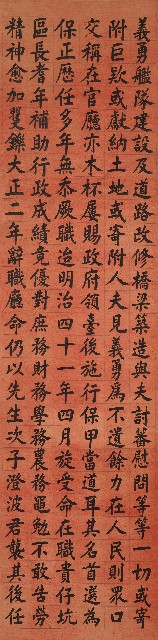 義勇艦隊建設及道路改修橋梁築造與夫討蕃慰問等等一切或寄
附巨款或獻納土地或寄附人夫見義勇為不遺餘力在人民則眾口
交稱在官廳亦木杯屢賜政府領臺後施行保甲當道耳其名首選為
保正歷任多年無忝厥職造明治四十一年四月旋受命在職貴仔坑
區長耆年補助行政成績竟優對庶務財務學務農務黽勉不敢告勞
精神愈加矍鑠大正二年辭職廳命仍以先生次子澄波君襲其後任